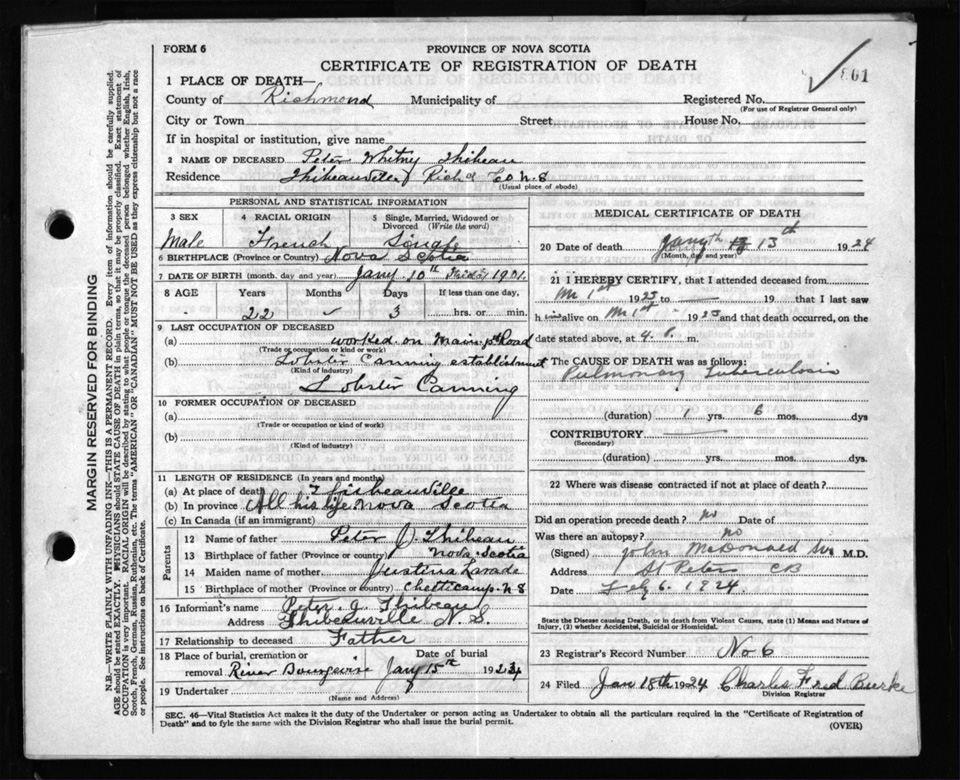 FORM 6
PROVINCE OF NOVA SCOTIA
CERTIFICATE OF REGISTRATION OF DEATH
801
1 PLACE OF DEATH—
County of Richmond Municipality of
Registered No.
(For use of Registrar General only)
City or Town Street, House No.
If in hospital or institution, give name
2 NAME OF DECEASED Peter Whitny Thibeau
Residence Thibeauville Richd Co N.S
(Usual place of abode)
PERSONAL AND STATISTICAL INFORMATION
3 SEX 4 RACIAL ORIGIN 5 Single, Married, Widowed or Divorced (Write the word)
Male French Single
6 BIRTHPLACE (Province or Country) Nova Scotia
7 DATE OF BIRTH (month, day and year) Jany 10th Friday 1901.
8 AGE Years Months Days If less than one day,
22 3 hrs. or min.
9 LAST OCCUPATION OF DECEASED
(a) worked on Main Road
(Trade or occupation or kind or work)
(b) Lobster Canning establishment
(Kind of industry)
Lobster Canning
10 FORMER OCCUPATION OF DECEASED
(a)
(Trade or occupation or kind of work)
(b)
(Kind of industry)
11 LENGTH OF RESIDENCE (In years and months)
(a) At place of death Thibeauville
(b) In province All his life Nova Scotia
(c) In Canada (if an immigrant)
Parents
12 Name of father Peter J. Thibeau
13 Birthplace of father (Province or country) Nova Scotia
14 Maiden name of mother Justina Lavade
15 Birthplace of mother (Province or country) Chetticamp N S
16 Informant's name Peter J. Thibeau
Address Thibeauville N.S.
17 Relationship to deceased Father
18 Place of burial, cremation or removal Date of burial
River Bourgeoise Jany 15th 1924
19 Undertaker
(Name and Address)
MEDICAL CERTIFICATE OF DEATH
20 Date of death Jany 13th 1924
(Month, day and year)
21 I HEREBY CERTIFY, that I attended deceased from
1923 to 19 that I last saw
h alive on 1923 and that death occurred, on the
date stated above, at 4. m.
The CAUSE OF DEATH was as follows:
Pulmonary Tuberculosis
(duration) 1 yrs. 6 mos. dys
CONTRIBUTORY
(Secondary)
(duration) yrs. mos. dys.
22 Where was disease contracted if not at place of death?
Did an operation precede death? no Date of
Was there an autopsy? no
(Signed) John McDonald M.D.
Address St Peters CB
Date 6. 1924.
State the Disease causing Death, or in death from Violent Causes, state (1) Means and Nature of Injury, (2) whether Accidental, Suicidal or Homicidal.
23 Registrar's Record Number No 6
24 Filed Jan 18th 1924 Charles Fred Burke
Division Registrar
SEC. 46—Vital Statistics Act makes it the duty of the Undertaker or person acting as Undertaker to obtain all the particulars required in the "Certificate of Registration of
Death" and to fyle the same with the Division Registrar who shall issue the burial permit.
(OVER)
MARGIN RESERVED FOR BINDING
N.B.—WRITE PLAINLY WITH UNFADING INK—THIS IS A PERMANENT RECORD. Every item of information should be carefully supplied.
AGE should be stated EXACTLY. PHYSICIANS should STATE CAUSE OF DEATH in plain terms, so that it may be properly classified. Exact statement of
OCCUPATION is very important. RACIAL ORIGIN will be described by stating to what people or tongue the deceased person belonged whether English, Irish,
Scotch, French, German, Russian, Ruthenian, etc. The terms "AMERICAN" OR "CANADIAN" MUST NOT BE USED as they express citizenship but not a race
or people. See instructions on back of Certificate.